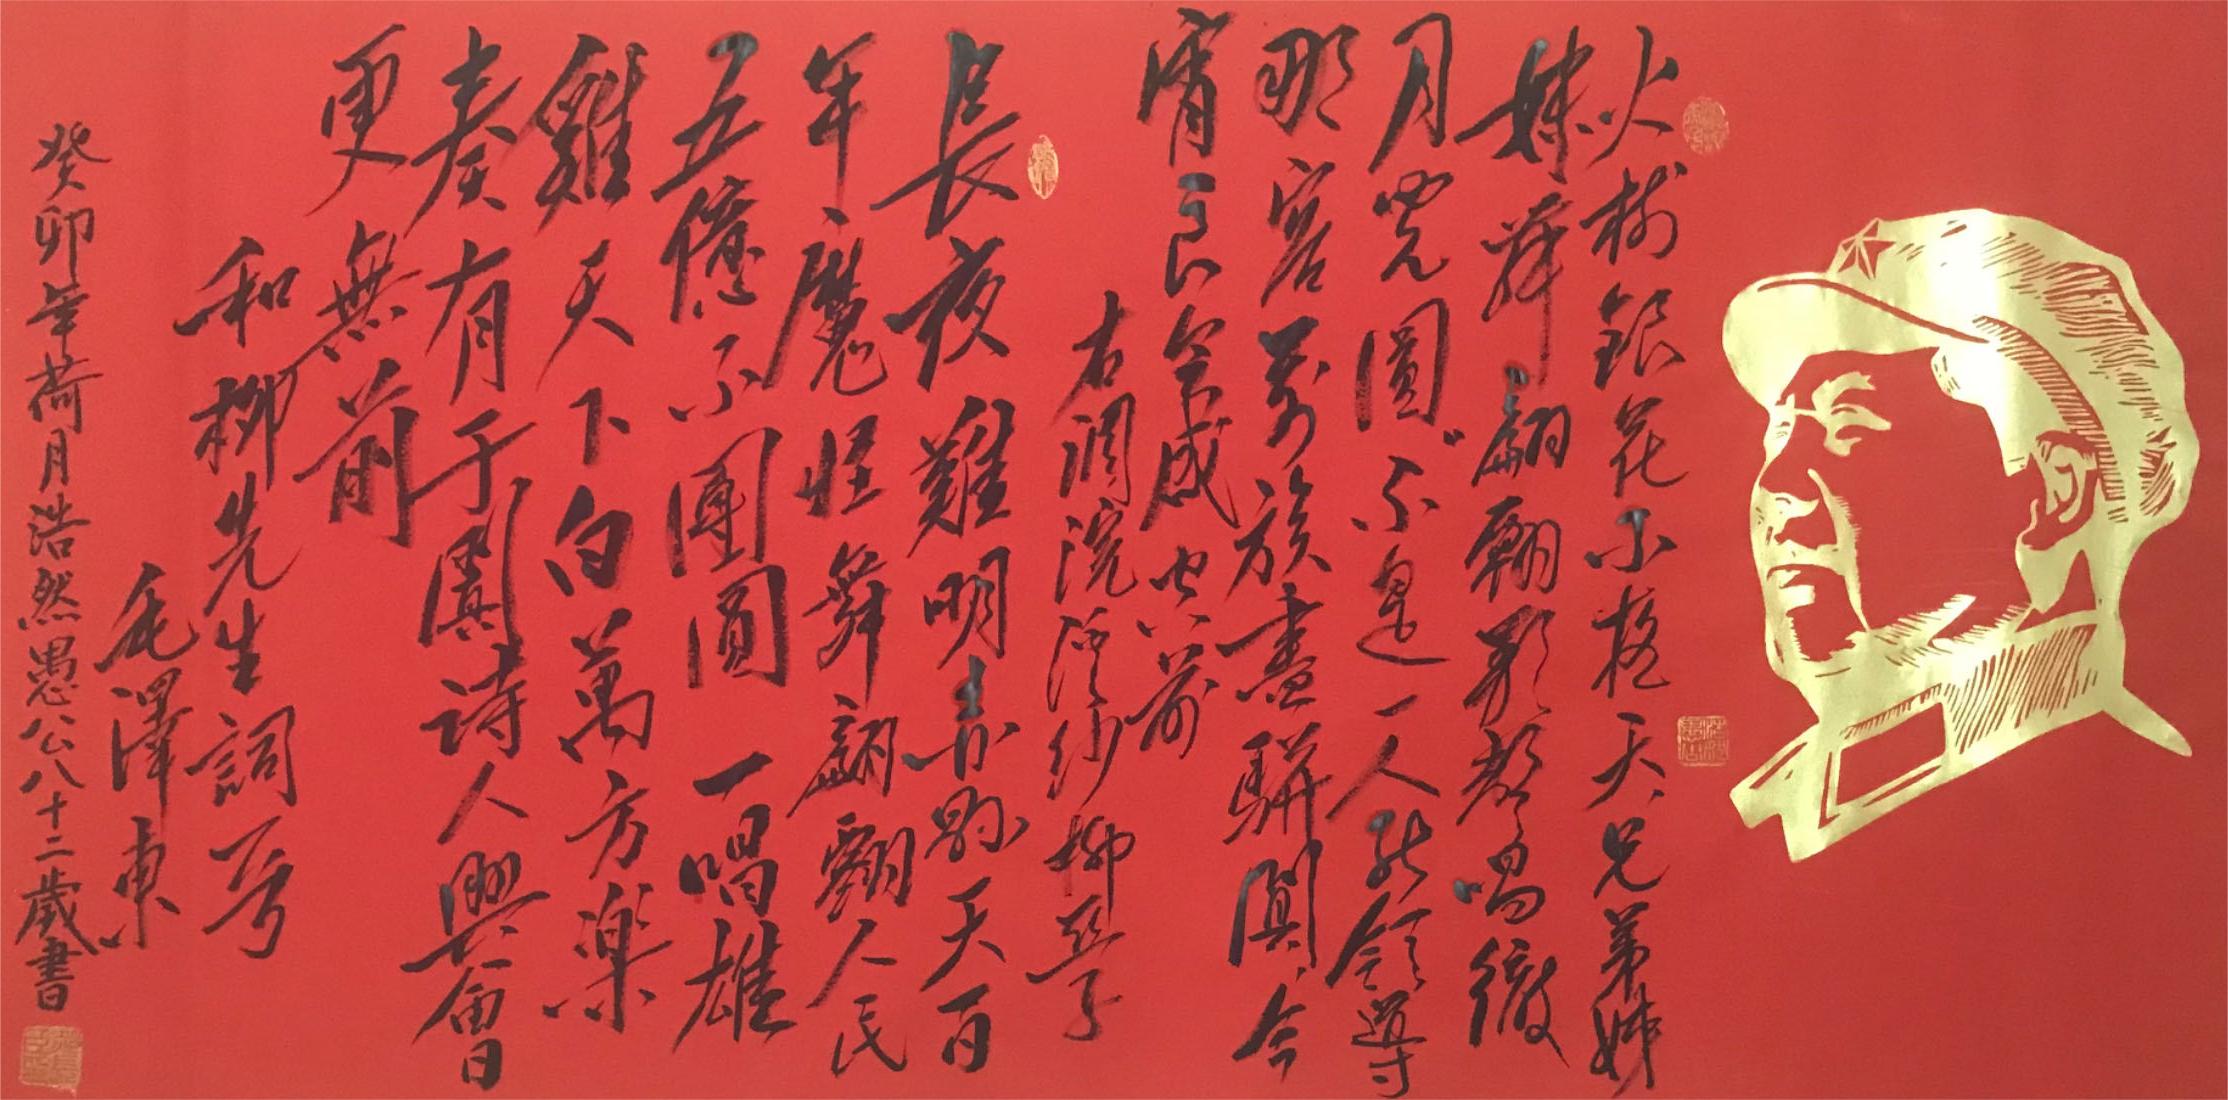 火樹銀花不夜天兄弟姊
妹舞翩歌聲唱徹
月兒圓不是一人能領導
那容万族盡駢闐今
宵良會盛空前
右調浣溪沙柳亞子
長夜難明赤縣天百
年魔怪舞翩人民
五億不團圓一唱雄
雞天下白萬方樂
奏有于闐詩人興會
更無前
和柳先生詞一首
毛澤東
癸卯年荷月浩然愚公八十二歲書